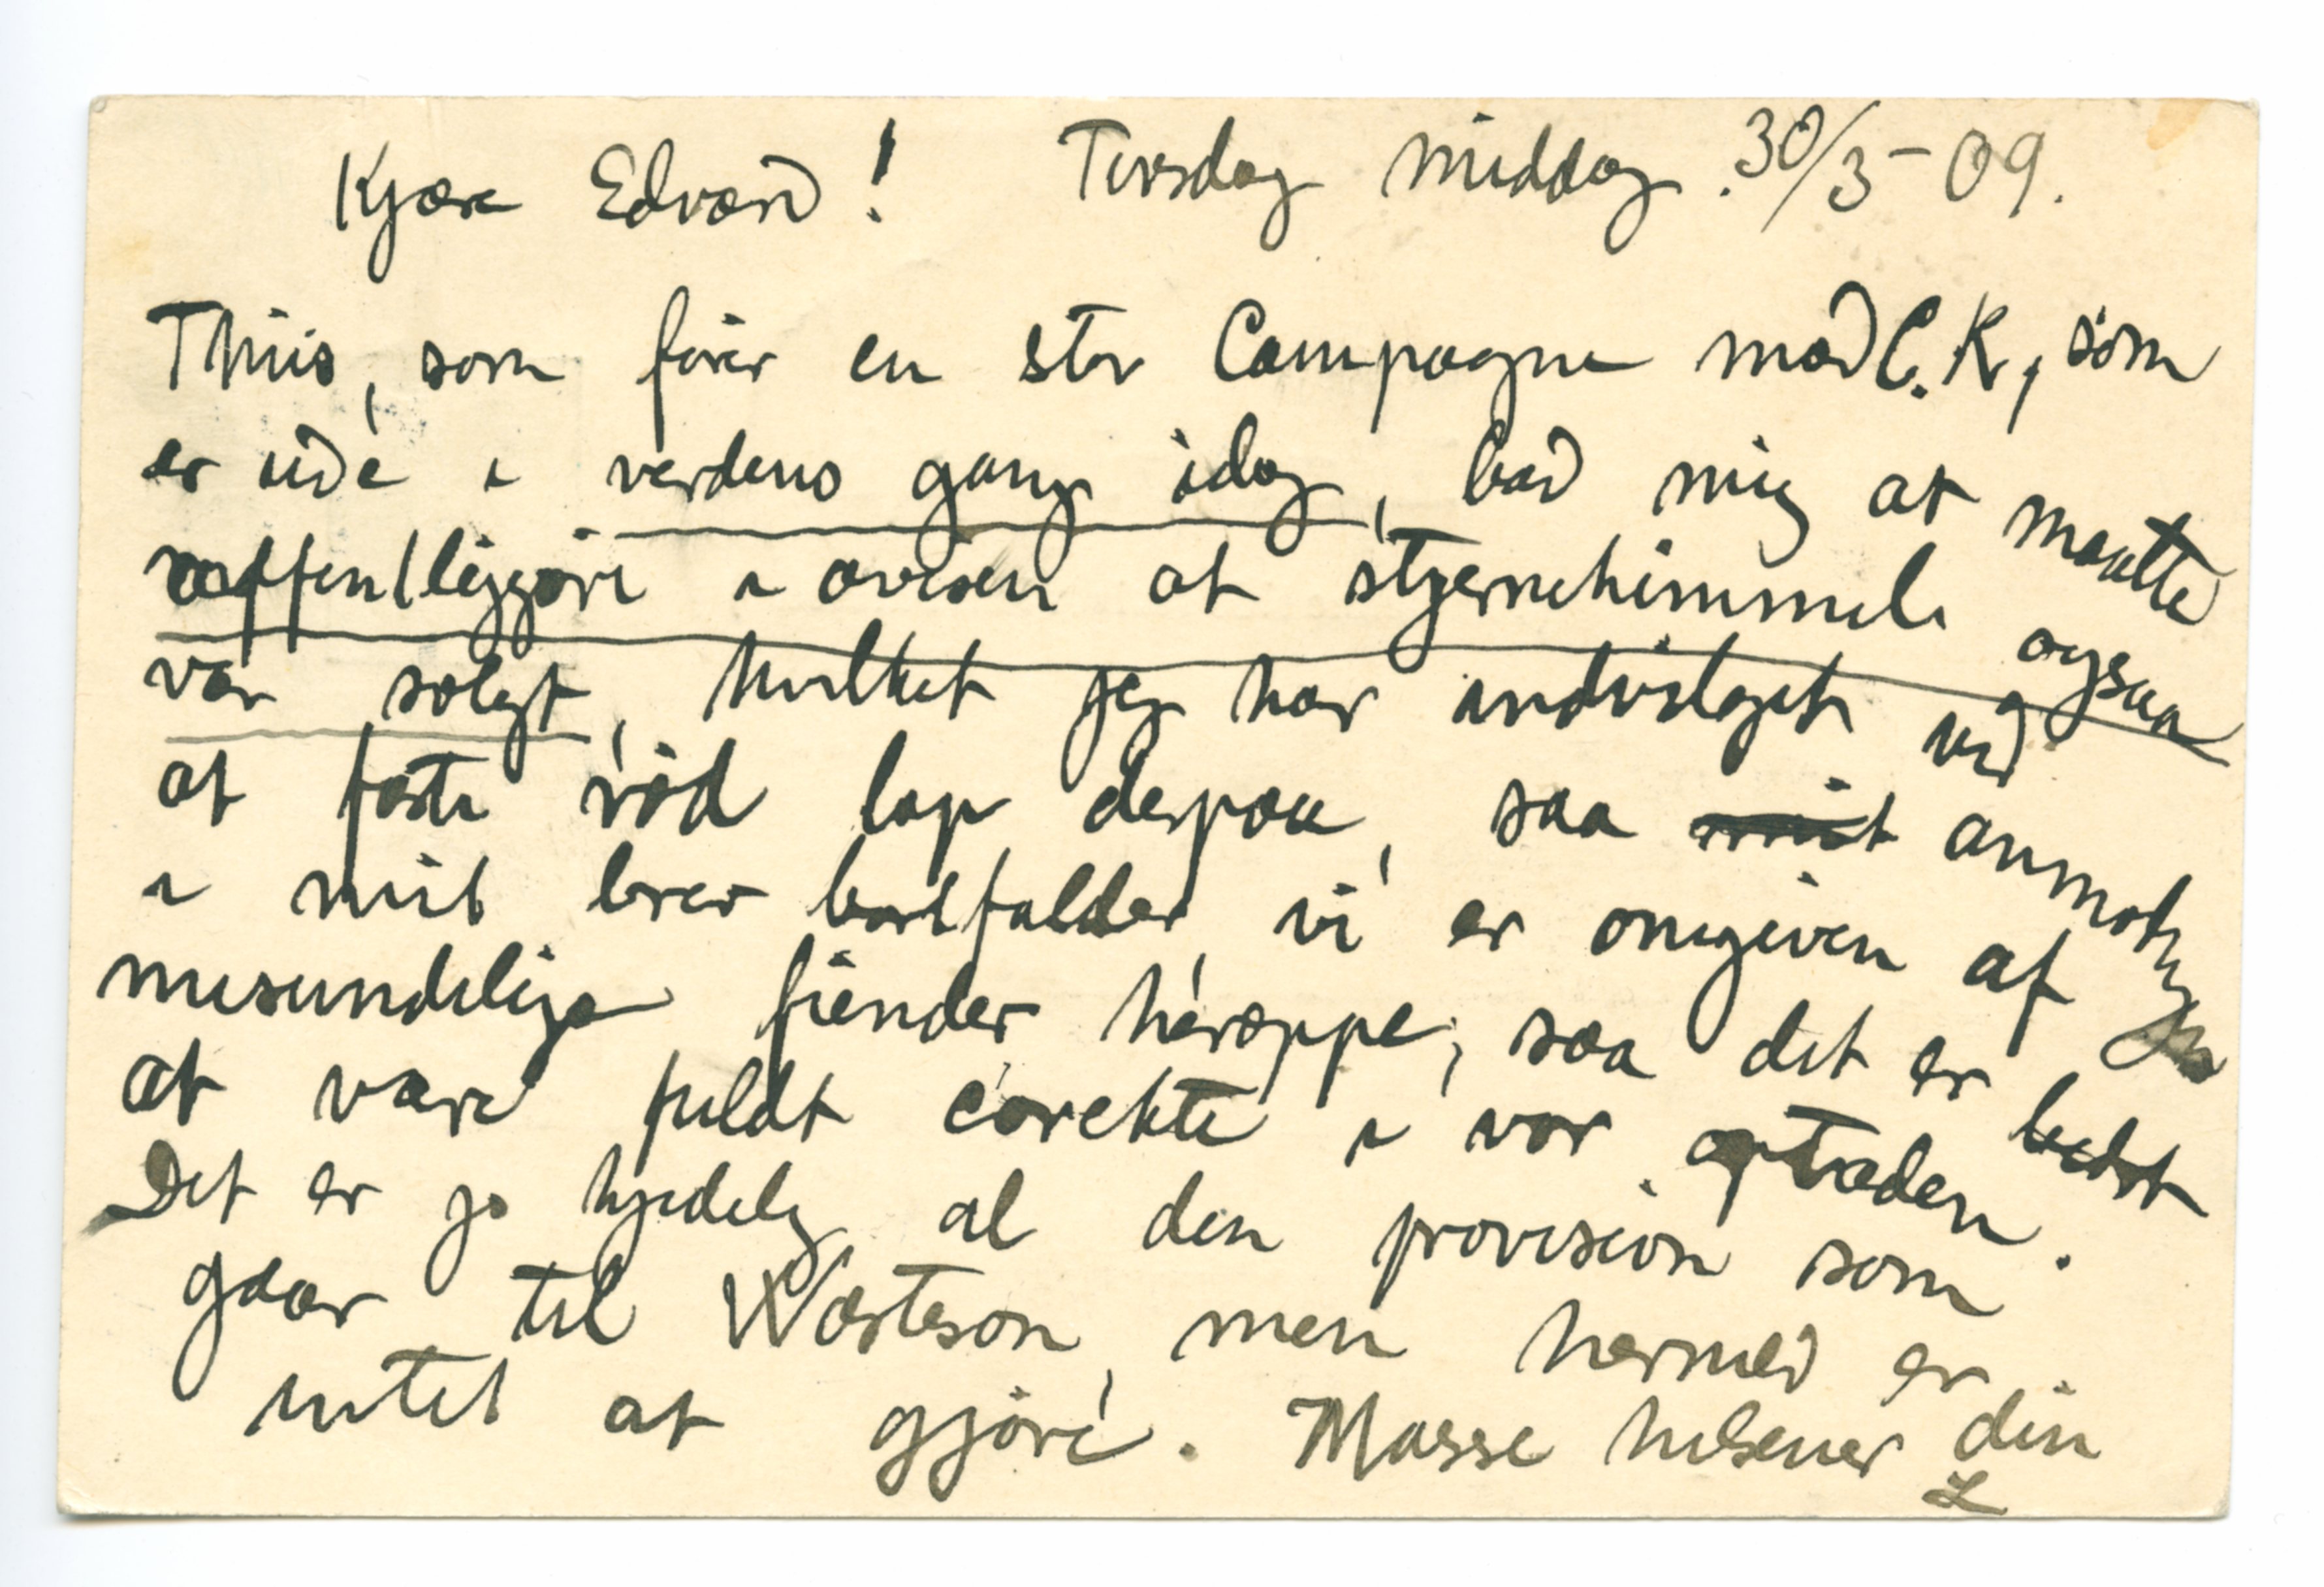 Kjære Edvard! Tirsdag middag. 30/3-09.
Thiis, som fører en stor Campagne mod C.K., som
er ude i verdens gang idag, bad mig at maatte
offentliggjøre i avisen at stjernehimmelen ogsaa
var solgt, hvilket jeg har indvilget ved
at fæste rød lap derpaa, saa mit anmodning
i mit brev bortfalder, vi er omgiven af
misundelige fiender heroppe, saa det er bedst
at være fuldt corekte i vor optræden.
Det er jo kjedelig al den provision som
gaar til Warteson, men hermed er
intet at gjøre. Masse hilsener din
L